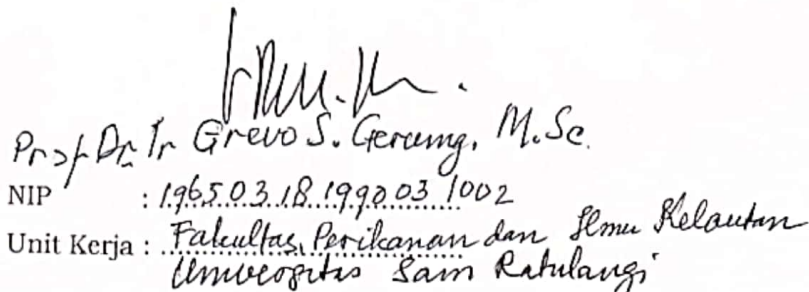 Prof Dr Ir Grevo S. Gerung, M.Sc.
NIP : 1965 03 18 1990 03 1002
Unit Kerja : Fakultas Perikanan dan Ilmu Kelautan
Universitas Sam Ratulangi